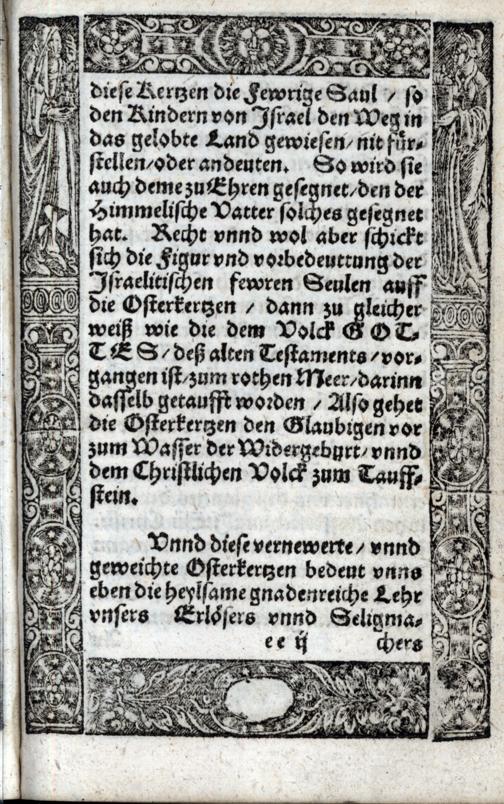 diese Kertzen die Fewrige Saul / so
den Kindern von Israel den Weg in
das gelobte Land gewiesen / nit für-
stellen / oder andeuten. So wird sie
auch deme zu Ehren gesegnet / den der
Himmelische Vatter solches gesegnet
hat. Recht vnnd wol aber schickt
sich die Figur vnd vorbedeuttung der
Israelitischen fewren Seulen auff
die Osterkertzen / dann zu gleicher
weiß wie die dem Volck GOT-
TES / deß alten Testaments / vor-
gangen ist / zum rothen Meer / darinn
dasselb getaufft worden / Also gehet
die Osterkertzen den Glaubigen vor
zum Wasser der Widergeburt / vnnd
dem Christlichen Volck zum Tauff-
stein.
Vnnd diese vernewerte / vnnd
geweichte Osterkertzen bedeut vnns
eben die heylsame gnadenreiche Lehr
vnsers Erlösers vnnd Seligma-
ee ij chers